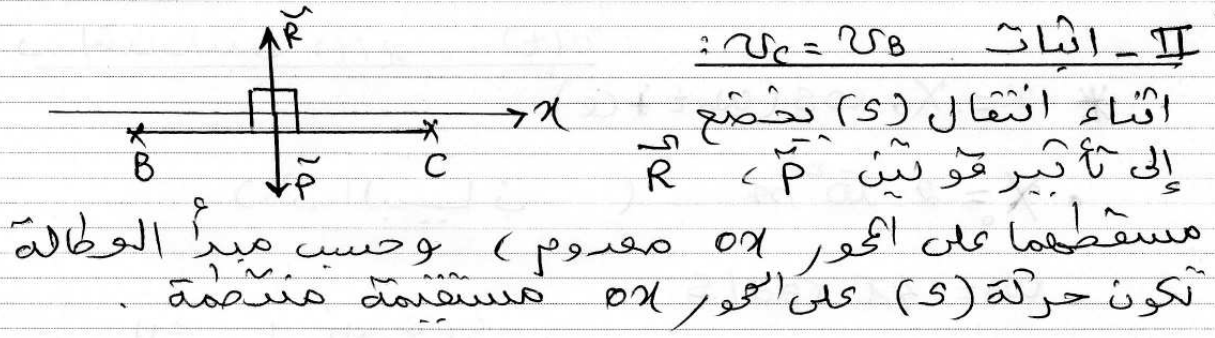 II - اثبات v_C = v_B :
R⃗
اثناء انتقال (S) يخضع
x
B
P⃗
C
إلى تأثير قوتين P⃗ ، R⃗
مسقطهما على المحور ox معدوم، وحسب مبدأ العطالة
تكون حركة (S) على المحور ox مستقيمة منتظمة .